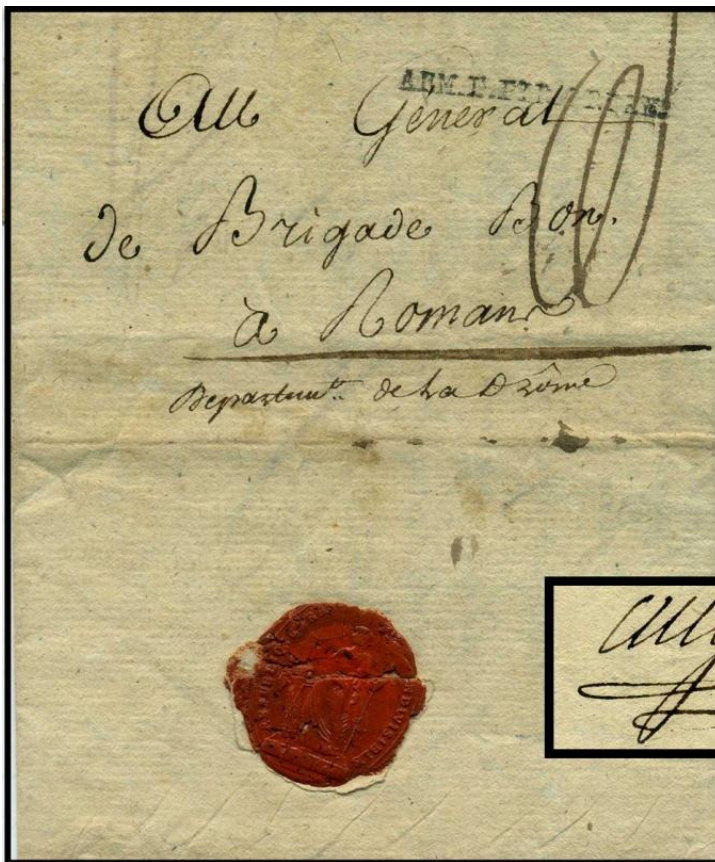 ARM. D.
Au Général
de Brigade Bon.
à Romans
Departem.t de La Drôme